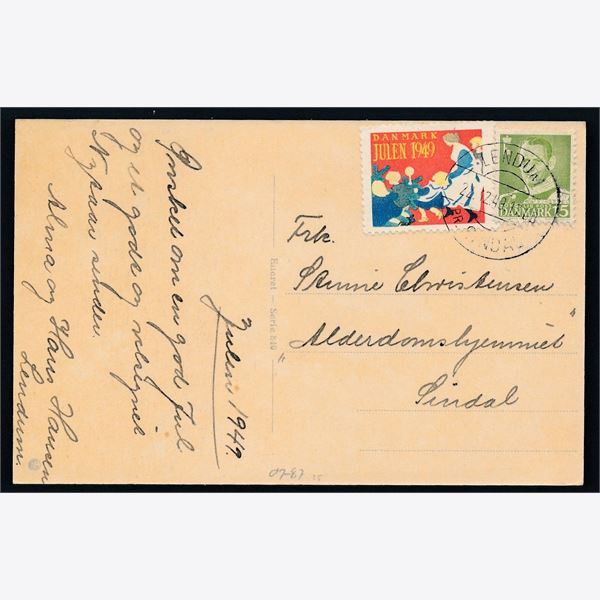 Julen 1949.
Ønsket om en god Jul
og et godt og velsignet
Nytaar sender.
Alma og Hans Hansen
Lendum.
Eneret — Serie 840
DANMARK
JULEN 1949
DANMARK 15
LENDUM
PR. SINDAL
Frk.
Stinne Christensen
"Alderdomshjemmet"
Sindal